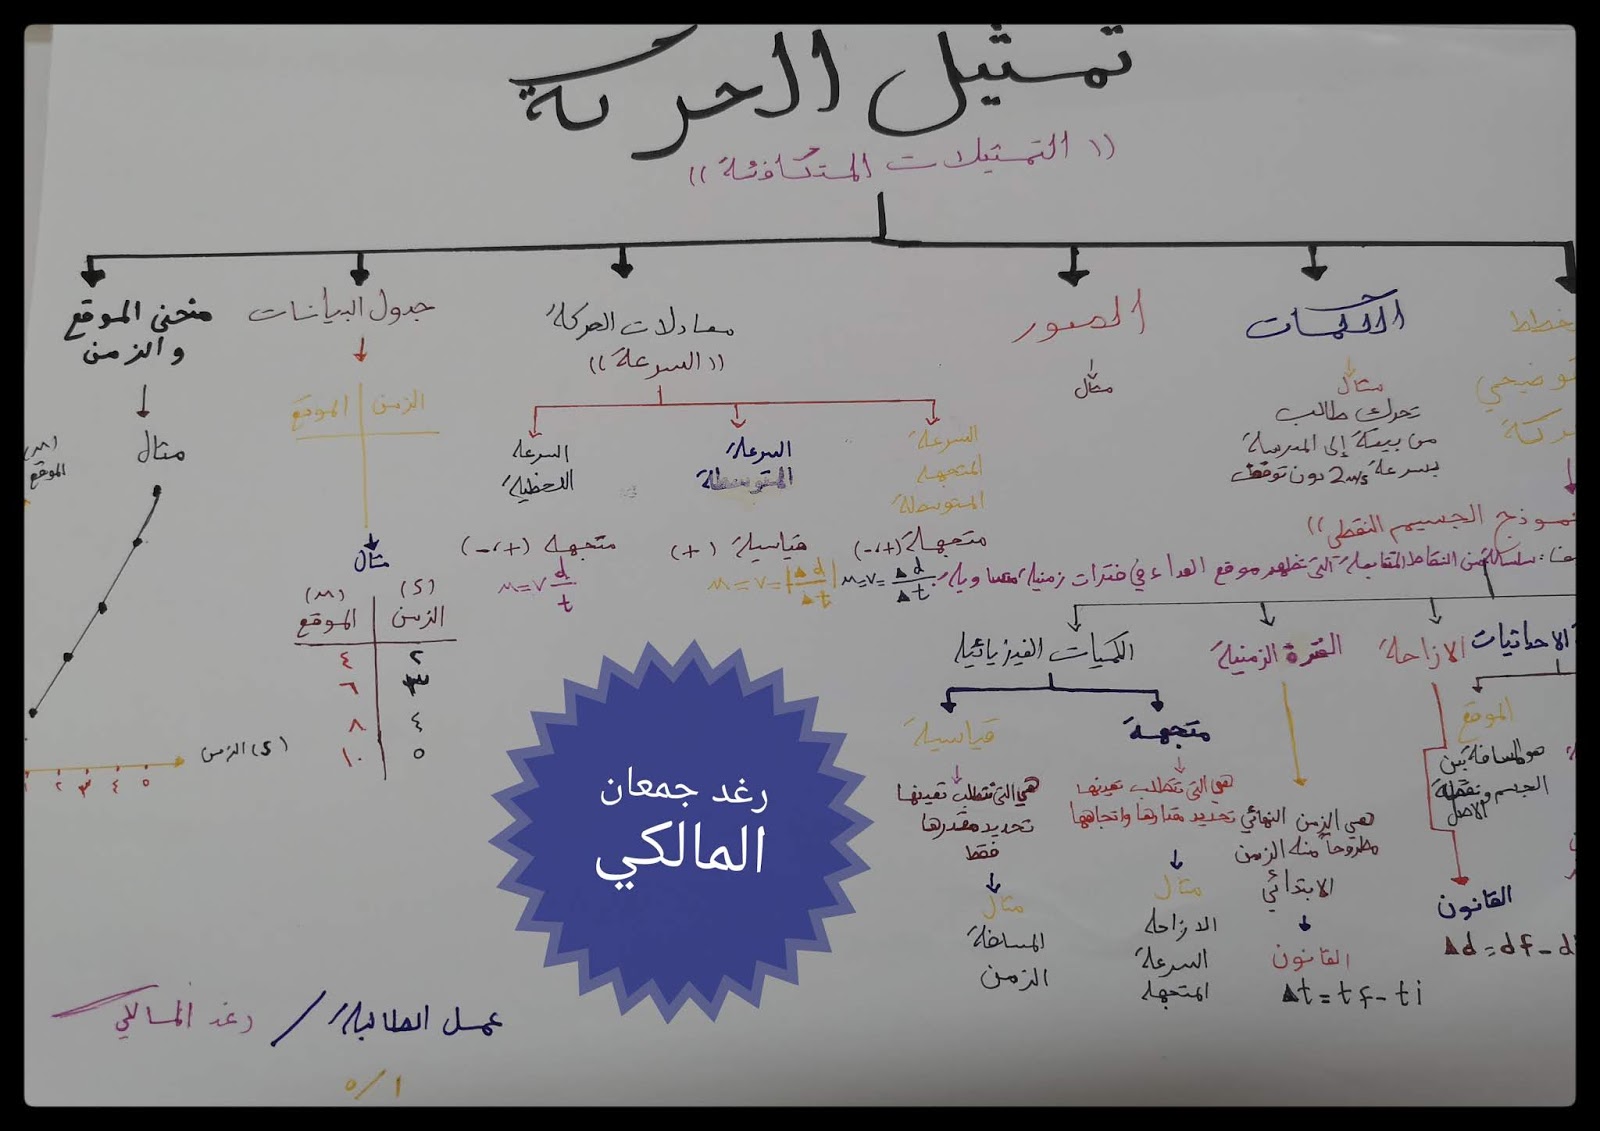 تمثيل الحركة
(( التمثيلات المتكافئة ))
الكلمات
مثال
تحرك طالب
من بيته إلى المدرسة
بسرعة 2m/s دون توقف
الصور
مثال
معادلات الحركة
(( السرعة ))
السرعة
المتجهة
المتوسطة
متجهة (+،-)
السرعة
المتوسطة
قياسية (+)
السرعة
اللحظية
متجهة (+،-)
جدول البيانات
الزمن
الموقع
مثال
(s)
(m)
الزمن
الموقع
٢ ٤
٣ ٦
٤ ٨
٥ ١٠
منحنى الموقع
والزمن
مثال
(m)
الموقع
(s) الزمن
٢ ٣ ٤ ٥
توضيحي
نموذج الجسيم النقطي))
سلسلة من النقاط المتتابعة التي تظهر موقع العداء في فترات زمنية متساوية
الموقع
هو المسافة بين
الجسم ونقطة
الاصل
الازاحة
القانون
Δd = df - di
الفترة الزمنية
هي الزمن النهائي
مطروحاً منه الزمن
الابتدائي
القانون
Δt = tf - ti
الكميات الفيزيائية
متجهة
هي التي تتطلب تعينها
تحديد مقدارها واتجاهها
مثال
الازاحة
السرعة
المتجهة
قياسية
هي التي تتطلب تعينها
تحديد مقدرها
فقط
مثال
المسافة
الزمن
رغد جمعان
المالكي
عمل الطالبة / رغد المالكي
١/٥